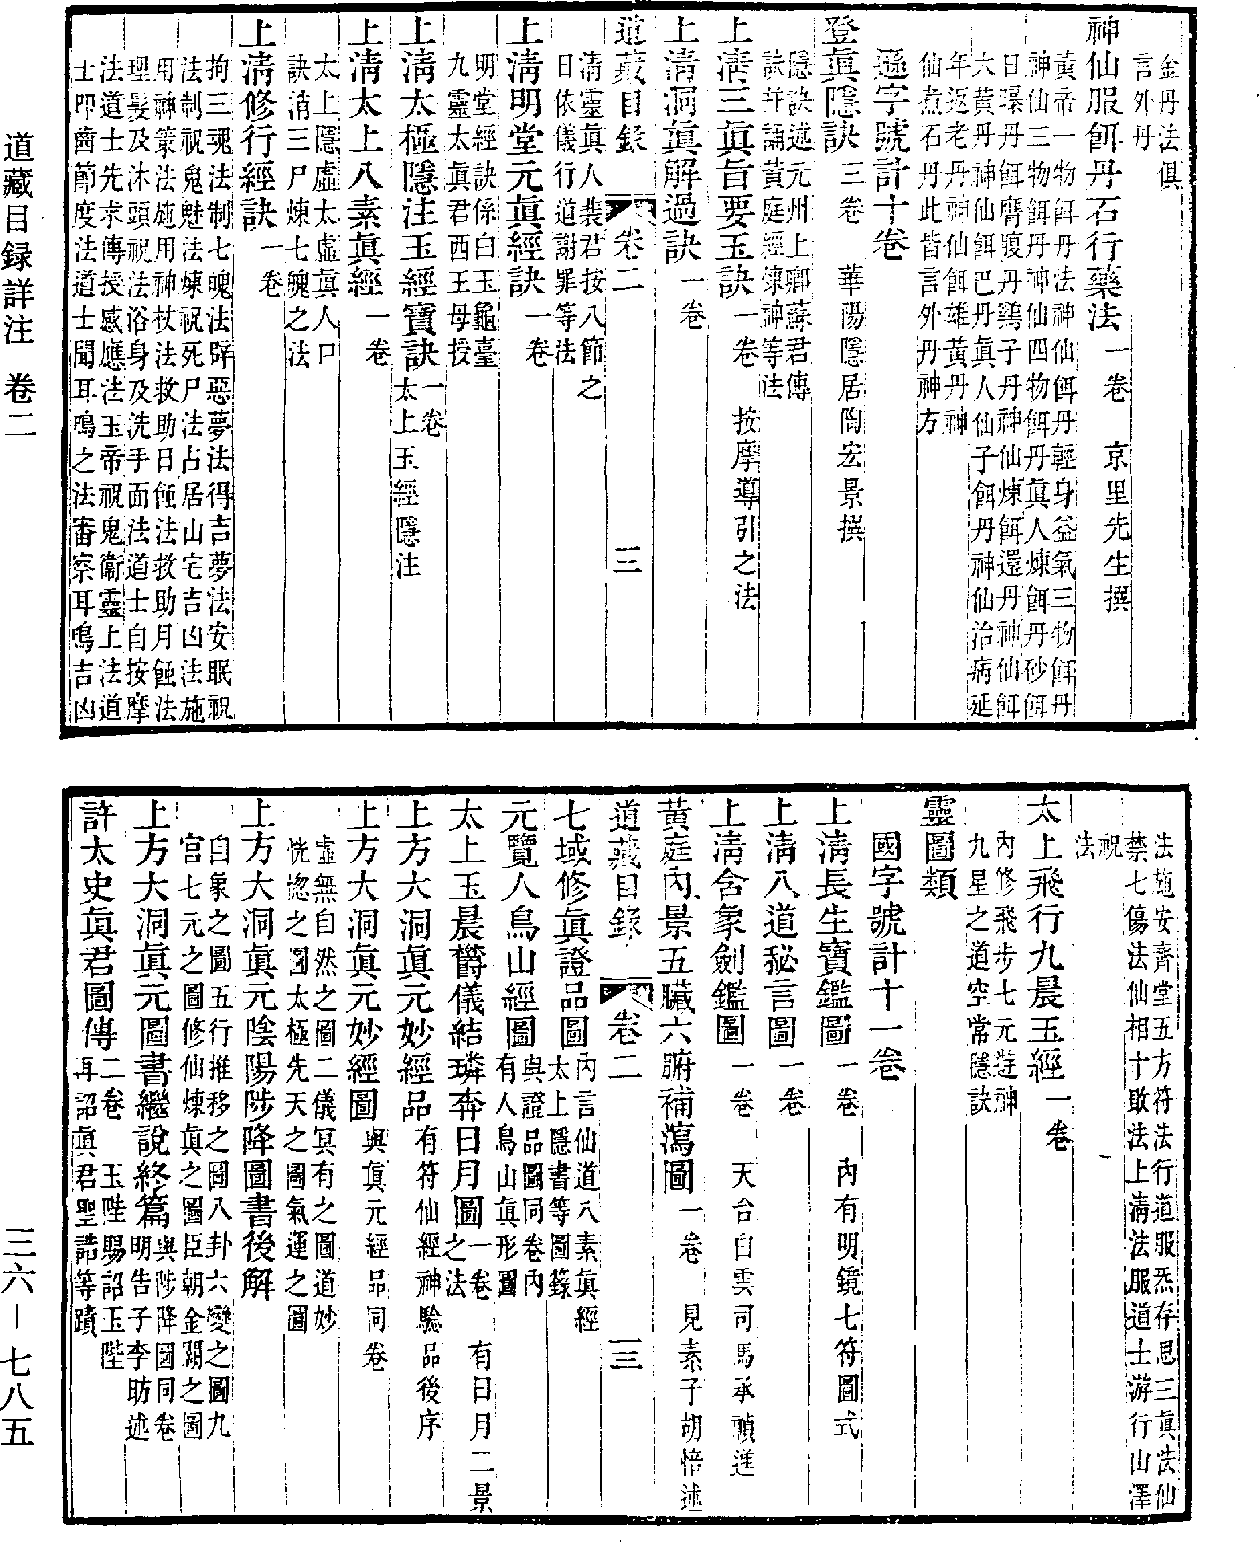 金丹法俱
言外丹
神仙服餌丹石行藥法一卷　京里先生撰
黃帝一物餌丹法神仙餌丹輕身益氣三物餌丹
神仙三物餌丹神仙四物餌丹真人煉餌丹砂餌
日曝丹餌膺腹丹鷄子丹神仙煉餌還丹神仙餌
六黃丹神仙餌巴丹真人仙子餌丹神仙治病延
年返老丹神仙餌雄黃丹神
仙煮石丹此皆言外丹神方
遜字號計十卷
登眞隱訣三卷　華陽隱居陶宏景撰
隱訣述元州上卿蘇君傳
訣并誦黃庭經煉神等法
上淸三眞旨要玉訣一卷　按摩導引之法
上淸洞眞解過訣一卷
道藏目錄　卷二　三
淸靈眞人裴君按八節之
日依儀行道謝罪等法
上淸明堂元眞經訣一卷
明堂經訣係白玉龜臺
九靈太眞君西王母授
上淸太極隱注玉經寶訣一卷太上玉經隱注
上淸太上八素眞經一卷
太上隱虛太虛眞人口
訣消三尸煉七魄之法
上淸修行經訣一卷
拘三魂法制七魄法辟惡夢法得吉夢法安眠祝
法制祝鬼魅法煉祝死尸法占居山宅吉凶法施
用神策法施用神杖法救助日蝕法救助月蝕法
理髮及沐頭祝法浴身及洗手面法道士自按摩
法道士先求傳授感應法玉帝祝鬼衛靈上法道
士叩齒節度法道士聞耳鳴之法審察耳鳴吉凶
法施安齊堂五方符法行道服炁存思三眞法仙
禁七傷法仙相十敗法上淸法服道士游行山澤
祝
法
太上飛行九晨玉經一卷
內修飛步七元遊神
九星之道空常隱訣
靈圖類
國字號計十一卷
上淸長生寶鑑圖一卷　內有明鏡七符圖式
上淸八道秘言圖一卷
上淸含象劍鑑圖一卷　天台白雲司馬承禎進
黃庭內景五臟六腑補瀉圖一卷　見素子胡愔述
道藏目錄　卷二　三
七域修眞證品圖內言仙道八素眞經太上隱書等圖籙
元覽人鳥山經圖與證品圖同卷內有人鳥山眞形圖
太上玉晨鬱儀結璘奔日月圖一卷　有日月二景之法
上方大洞眞元妙經品有符仙經神驗品後序
上方大洞眞元妙經圖與眞元經品同卷
虛無自然之圖二儀冥有之圖道妙
恍惚之圖太極先天之圖氣運之圖
上方大洞眞元陰陽陟降圖書後解
自象之圖五行推移之圖八卦六變之圖九
宮七元之圖修仙煉眞之圖臣朝金闕之圖
上方大洞眞元圖書繼說終篇與陟降圖同卷明告子李昉述
許太史眞君圖傳二卷　玉陛賜詔玉陛再詔眞君聖誥等蹟
道藏目録詳注　卷二
三六—七八五